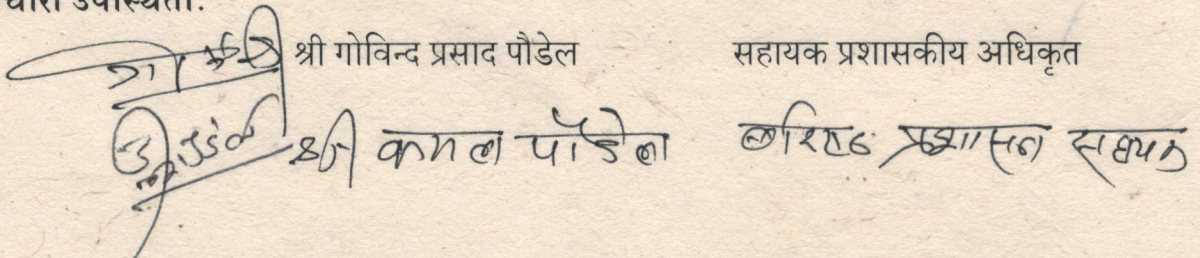 उपस्थिती:
श्री गोविन्द प्रसाद पौडेल सहायक प्रशासकीय अधिकृत
श्री कमल पौडेल वरिष्ठ प्रशासन सहायक